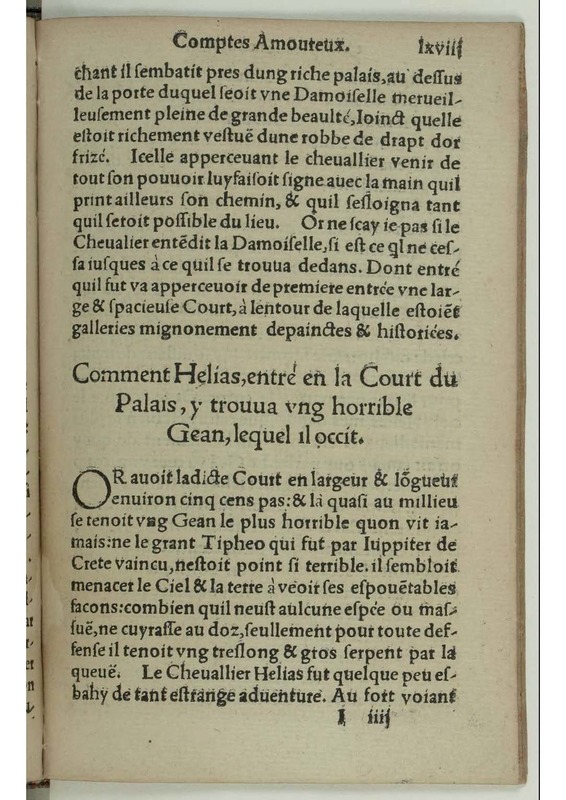 Comptes Amoureux. lxviij
chant il sembatit pres dung riche palais, au dessus
de la porte duquel seoit vne Damoiselle merueil-
leusement pleine de grande beaulté, Ioinct quelle
estoit richement vestuë dune robbe de drapt dor
frizé. Icelle apperceuant le cheuallier venir de
tout son pouuoir luy faisoit signe auec la main quil
print ailleurs son chemin, & quil sesloigna tant
quil seroit possible du lieu. Or ne scay ie pas si le
Cheualier entẽdit la Damoiselle, si est ce ql ne ces-
sa iusques à ce quil se trouua dedans. Dont entré
quil fut va apperceuoir de premiere entrée vne lar-
ge & spacieuse Court, à lentour de laquelle estoiẽt
galleries mignonement depainctes & historiées.
Comment Helias, entré en la Court du
Palais, y trouua vng horrible
Gean, lequel il occit.
OR auoit ladicte Court en largeur & lõgueur
enuiron cinq cens pas: & là quasi au millieu
se tenoit vng Gean le plus horrible quon vit ia-
mais: ne le grant Tipheo qui fut par Iuppiter de
Crete vaincu, nestoit point si terrible. il sembloit
menacer le Ciel & la terre à veoir ses espouẽtables
facons: combien quil neust aulcune espée ou mas-
suë, ne cuyrasse au doz, seullement pour toute def-
fense il tenoit vng treslong & gros serpent par la
queuë. Le Cheuallier Helias fut quelque peu es-
bahy de tant estrange aduenture. Au fort voiant
I iiij